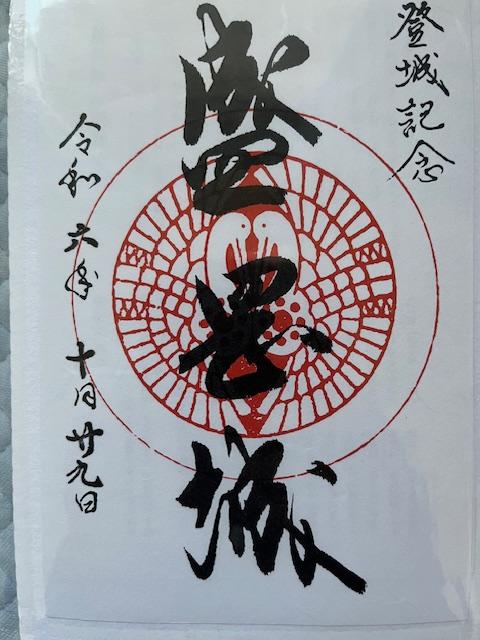 登城記念
盛岡城
令和六年 十月廿九日